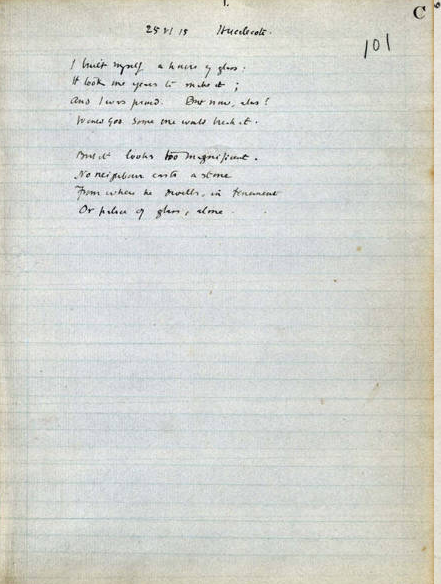 1.
C
25 VI 15 Hucclecote.
101
I built myself a house of glass:
It took me years to make it;
And I was proud. But now, alas!
Would God some one would break it.
But it looks too magnificent.
No neighbour casts a stone
From where he dwells, in tenement
Or palace of glass, alone.